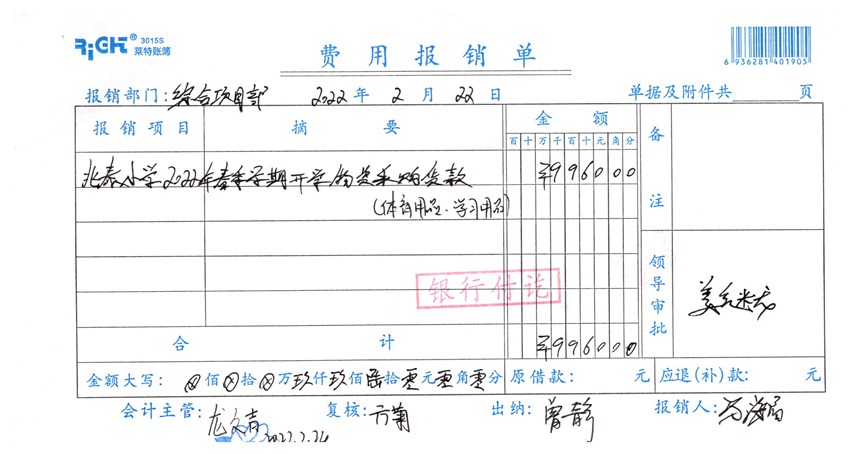 RiGHT® 3015S
莱特账簿
费用报销单
6 936281 401905
报销部门:综合项目部 2022年2月22日 单据及附件共 页
报销项目 摘要 金额 备注
百十万千百十元角分
兆泰小学2022年春季学期开学物资采购货款 ¥9960.00
(体育用品、学习用品)
银行付讫
领导审批
合计 ¥9960.00
金额大写:ⓧ佰ⓧ拾ⓧ万玖仟玖佰陆拾零元零角零分 原借款: 元 应退(补)款: 元
会计主管: 复核:方菊 出纳:曾静 报销人:
2022.2.26